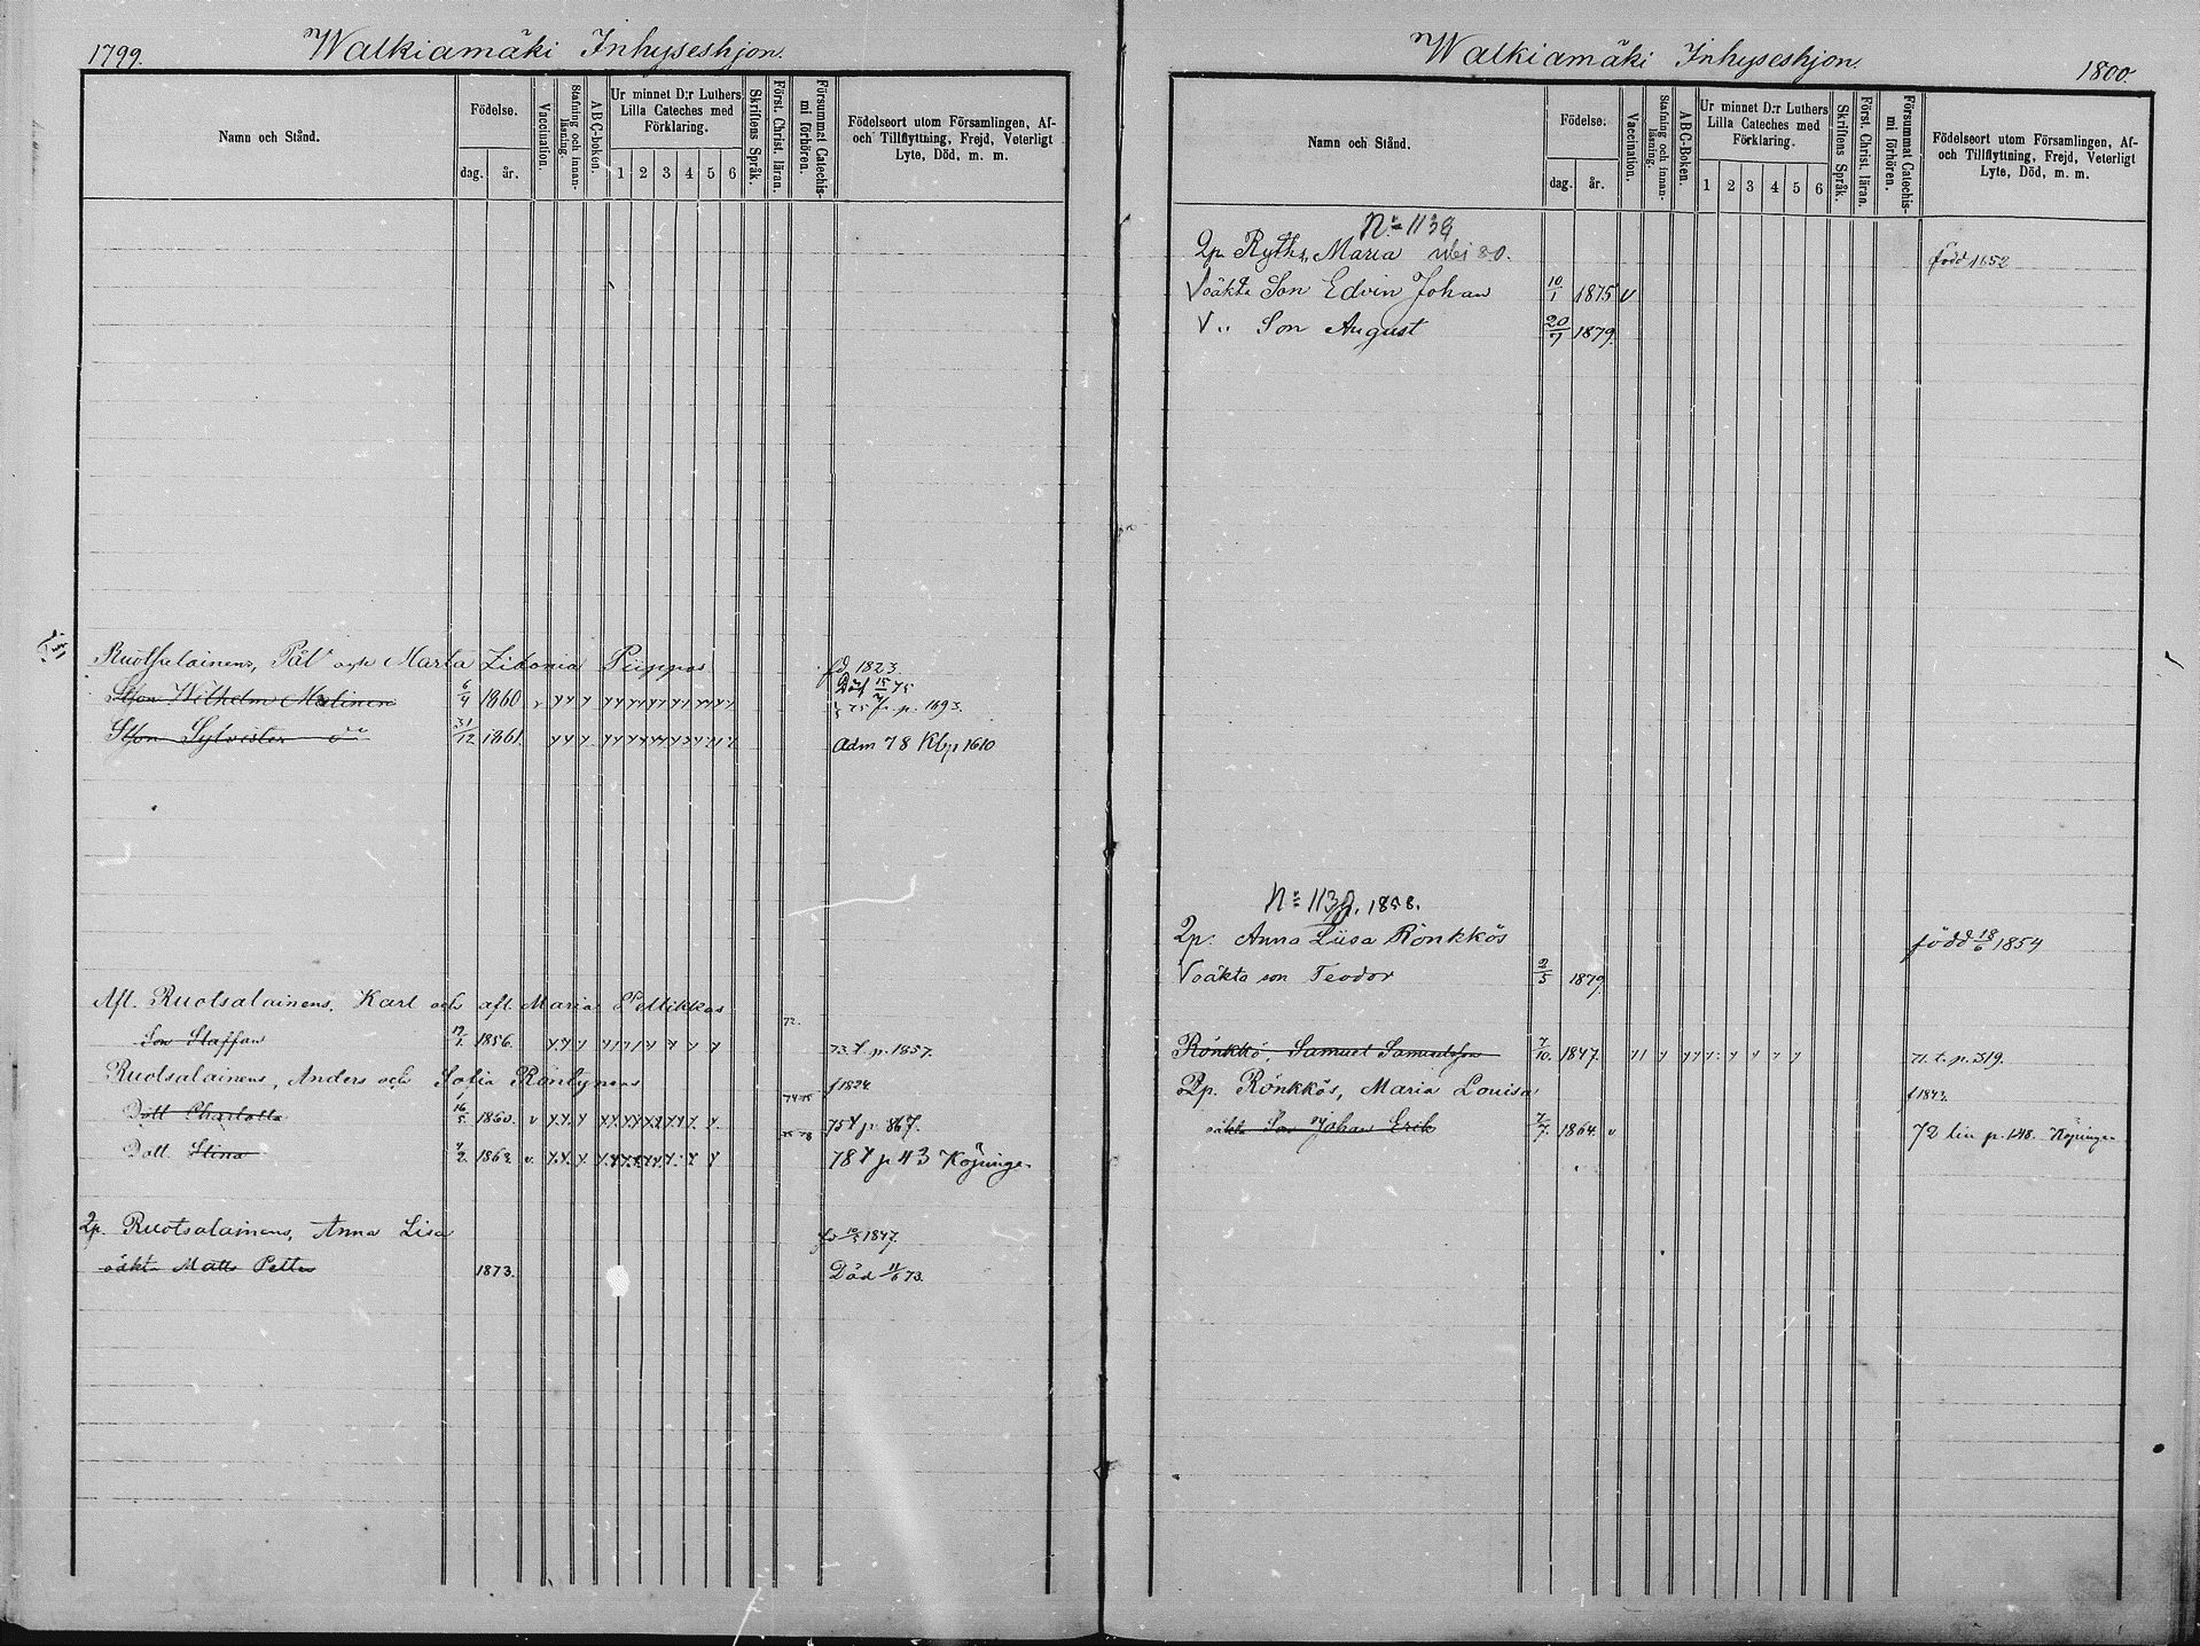 1799.
Walkiamäki Inhyseshjon.
Namn och Stånd.
Födelse.
dag. år.
Vaccination.
Stafning och innan-läsning.
ABC-boken.
Ur minnet D:r Luthers Lilla Cateches med Förklaring.
1 2 3 4 5 6
Skriftens Språk.
Först. Christ. läran.
Försummat Catechis-mi förhören.
Födelseort utom Församlingen, Af- och Tillflyttning, Frejd, Veterligt Lyte, Död, m. m.
Ruotsalainens, Pål och Marta Zidonia Piippos fd. 1823.
Död 15/7 75
Stfson Wilhelm Malinen 6/4 1860 75 p. 1693.
Stfson Sylvister 31/12 1861. adm 78 Kbp 1610
Afl. Ruotsalainens, Karl och afl. Maria Pellikkas 72.
Son Staffan 1856. 73. t. p. 1857.
Ruotsalainens, Anders och Sofia Röntynens f 1824
Dött Charlotta 16/5 1860. v 75 t p. 867.
Dott. Stina 78 t p 43 Köpinge
Qp. Ruotsalainens, Anna Lisa 1847.
oäkta Matts Petter 1873. Död 11/6 73.
Walkiamäki Inhyseshjon.
1800.
Namn och Stånd.
Födelse.
dag. år.
Vaccination.
Stafning och innan-läsning.
ABC-Boken.
Ur minnet D:r Luthers Lilla Cateches med Förklaring.
1 2 3 4 5 6
Skriftens Språk.
Först. Christ. läran.
Försummat Catechis-mi förhören.
Födelseort utom Församlingen, Af- och Tillflyttning, Frejd, Veterligt Lyte, Död, m. m.
Qp. Ryths, Maria 80. född 1852
V oäkta Son Edvin Johan 10/1 1875 v
V " Son August 20/7 1879.
Qp. Anna Liisa Rönkkös född 18/6 1854
V oäkta son Teodor 2/5 1879.
Rönkkö, Samuel Samuelsson 7/10. 1847. 71. t. p. 319.
Qp. Rönkkös, Maria Louisa f 1843.
oäkta Son Johan Erik 7/7. 1864. v 72 p. 148. Köpingen